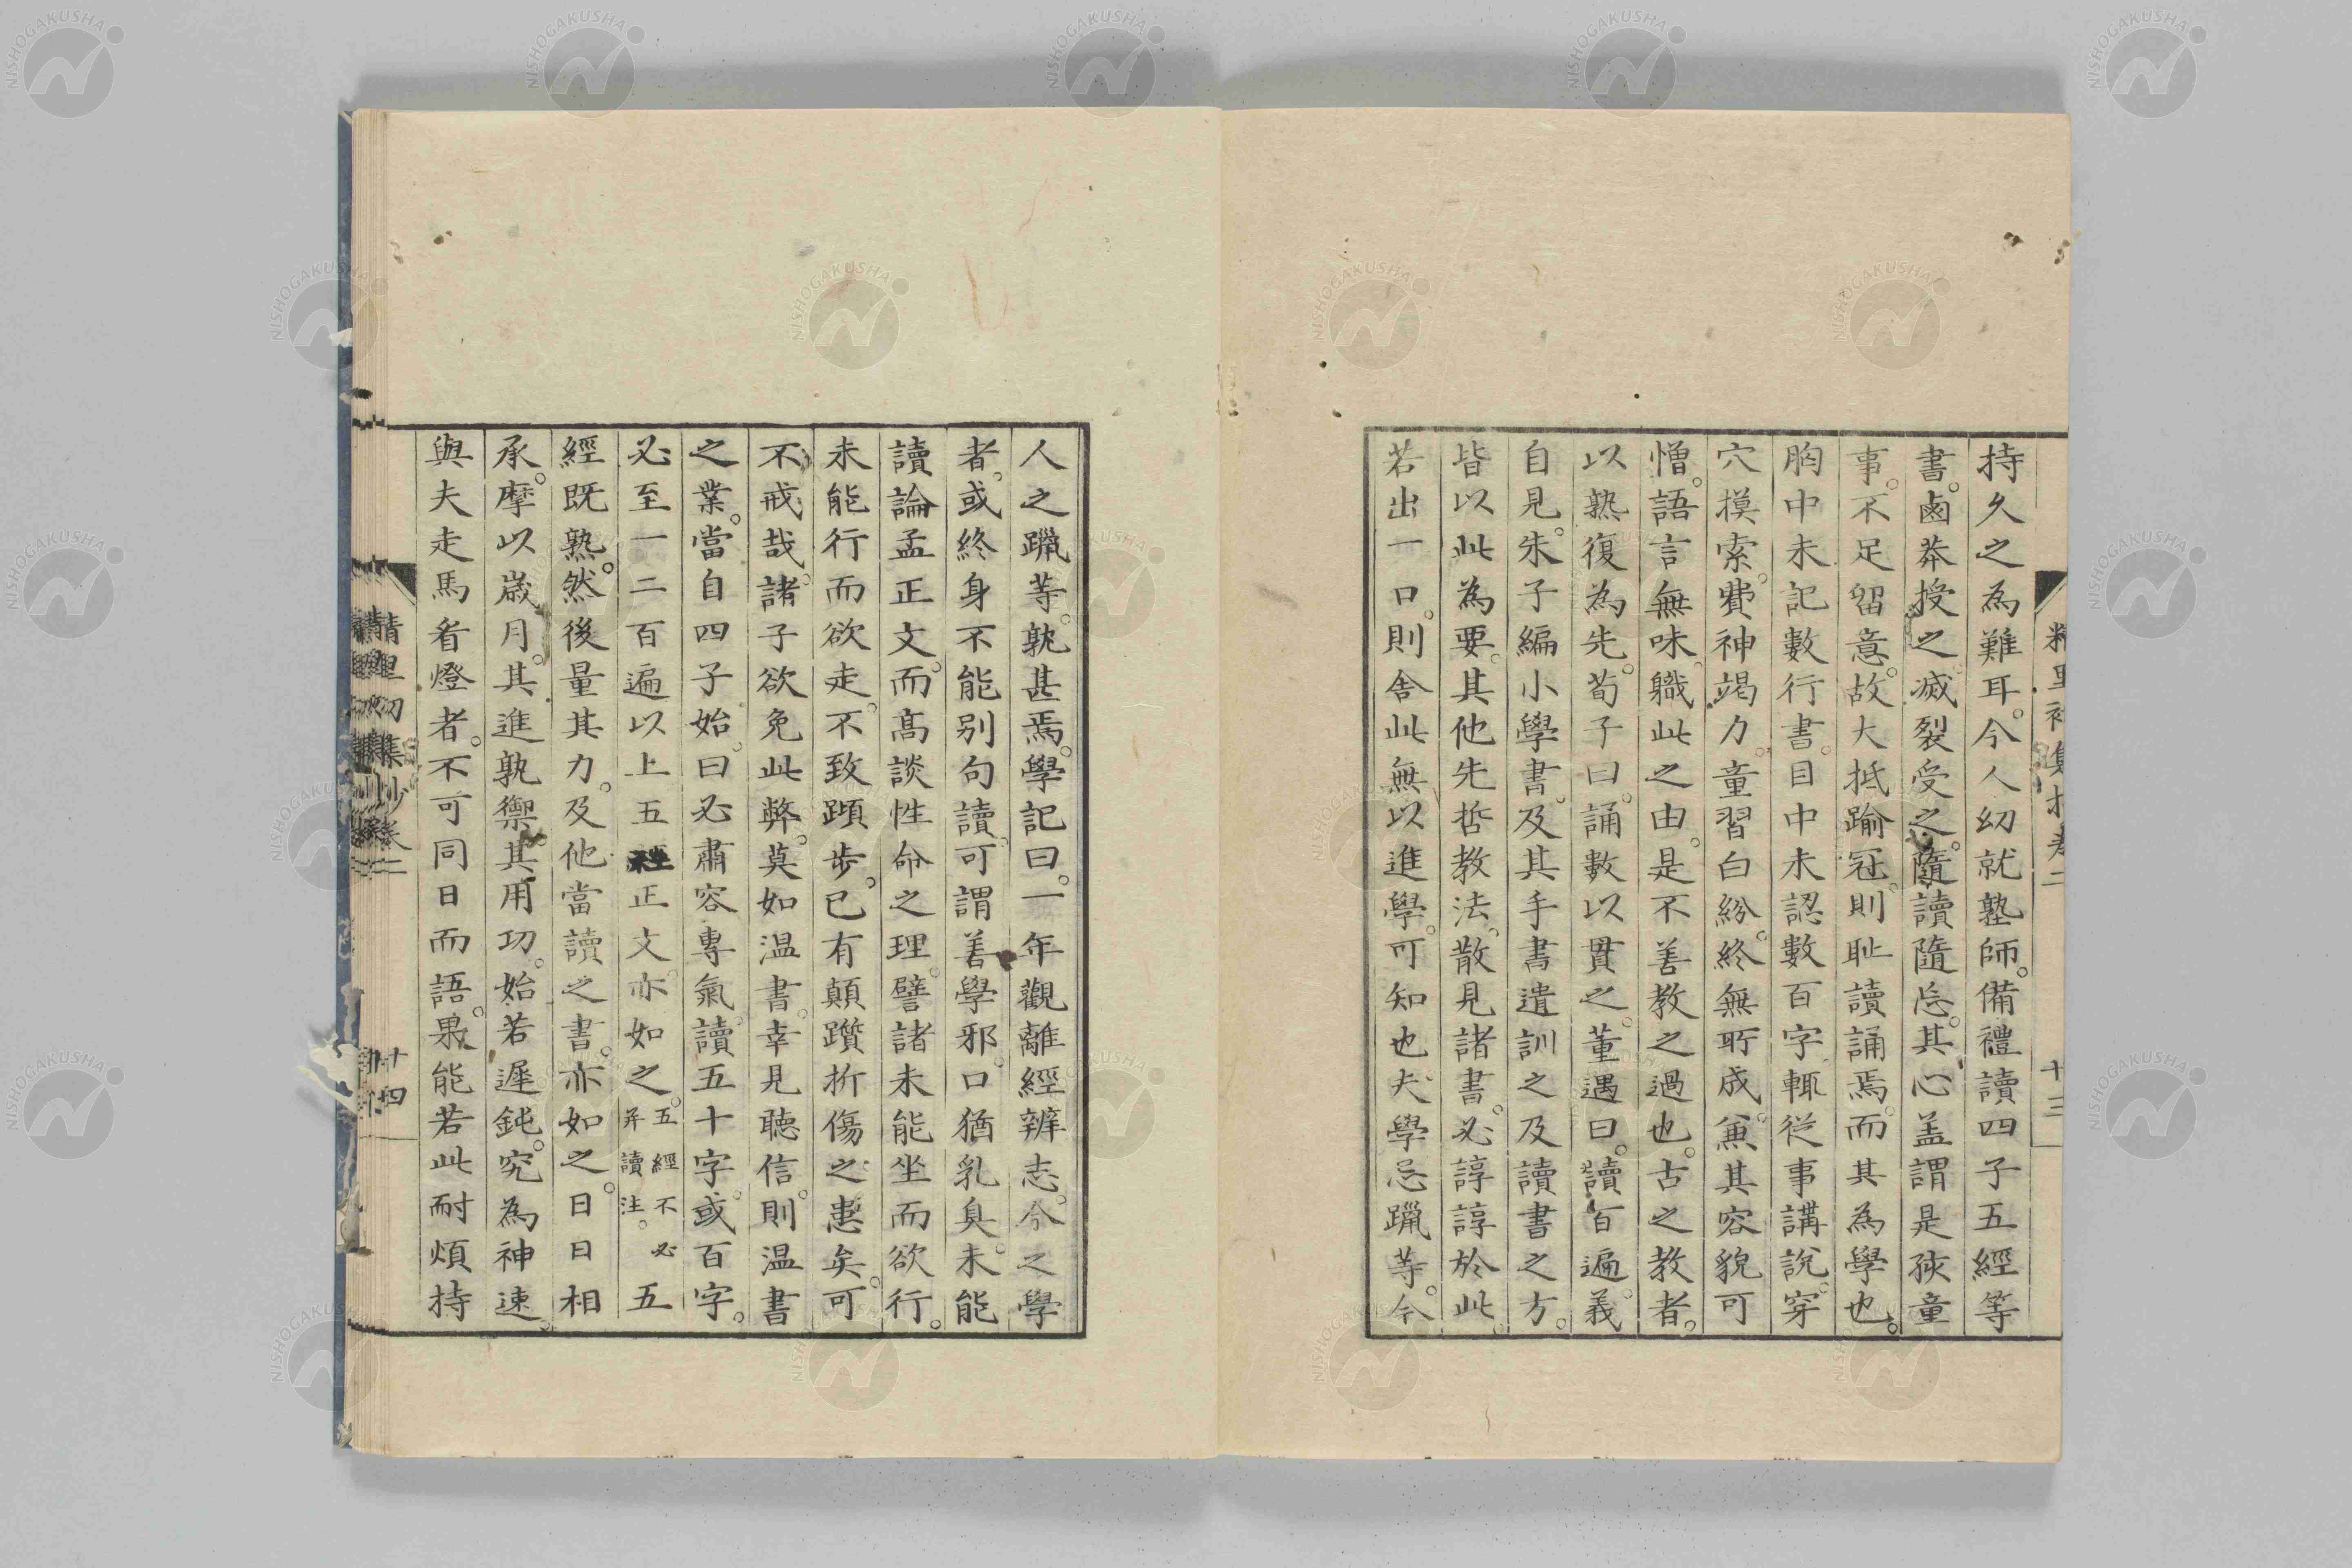 持久之為難耳。今人幼就塾師。備禮讀四子五經等
書。鹵莽授之。滅裂受之。隨讀隨忘。其心盖謂是孩童
事。不足留意。故大抵踰冠。則耻讀誦焉。而其為學也。
胸中未記數行書。目中未認數百字。輒從事講說。穿
穴摸索。費神竭力。童習白紛。終無所成。兼其容貌可
憎。語言無味。職此之由。是不善教之過也。古之教者。
以熟復為先。荀子曰。誦數以貫之。董遇曰。讀百遍。義
自見。朱子編小學書。及其手書遺訓之及讀書之方。
皆以此為要。其他先哲教法。散見諸書。必諄諄於此。
若出一口。則舍此無以進學。可知也。夫學忌躐等。今
人之躐等。孰甚焉。學記曰。一年觀離經辨志。今之學
者。或終身不能別句讀。可謂善學邪。口猶乳臭。未能
讀論孟正文。而高談性命之理。譬諸未能坐而欲行。
未能行而欲走。不致蹞步。已有顛躓折傷之患矣。可
不戒哉。諸子欲免此弊。莫如温書。幸見聽信。則温書
之業。當自四子始。曰必肅容專氣讀五十字。或百字。
必至一二百遍以上五經正文。亦如之。五經不必并讀注。五
經既熟。然後量其力。及他當讀之書。亦如之。日日相
承。摩以歲月。其進孰禦。其用功。始若遲鈍。究為神速。
與夫走馬看燈者。不可同日而語。果能若此耐煩持
十三
十四